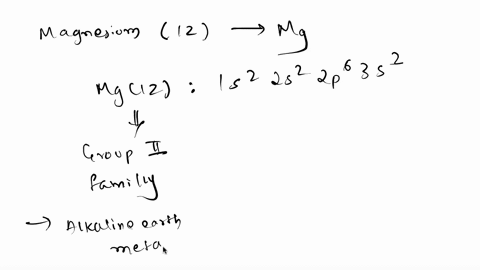 Magnesium (12) → Mg
Mg(12) : 1s² 2s² 2p⁶ 3s²
⇓
Group II
family
→ Alkaline earth
meta